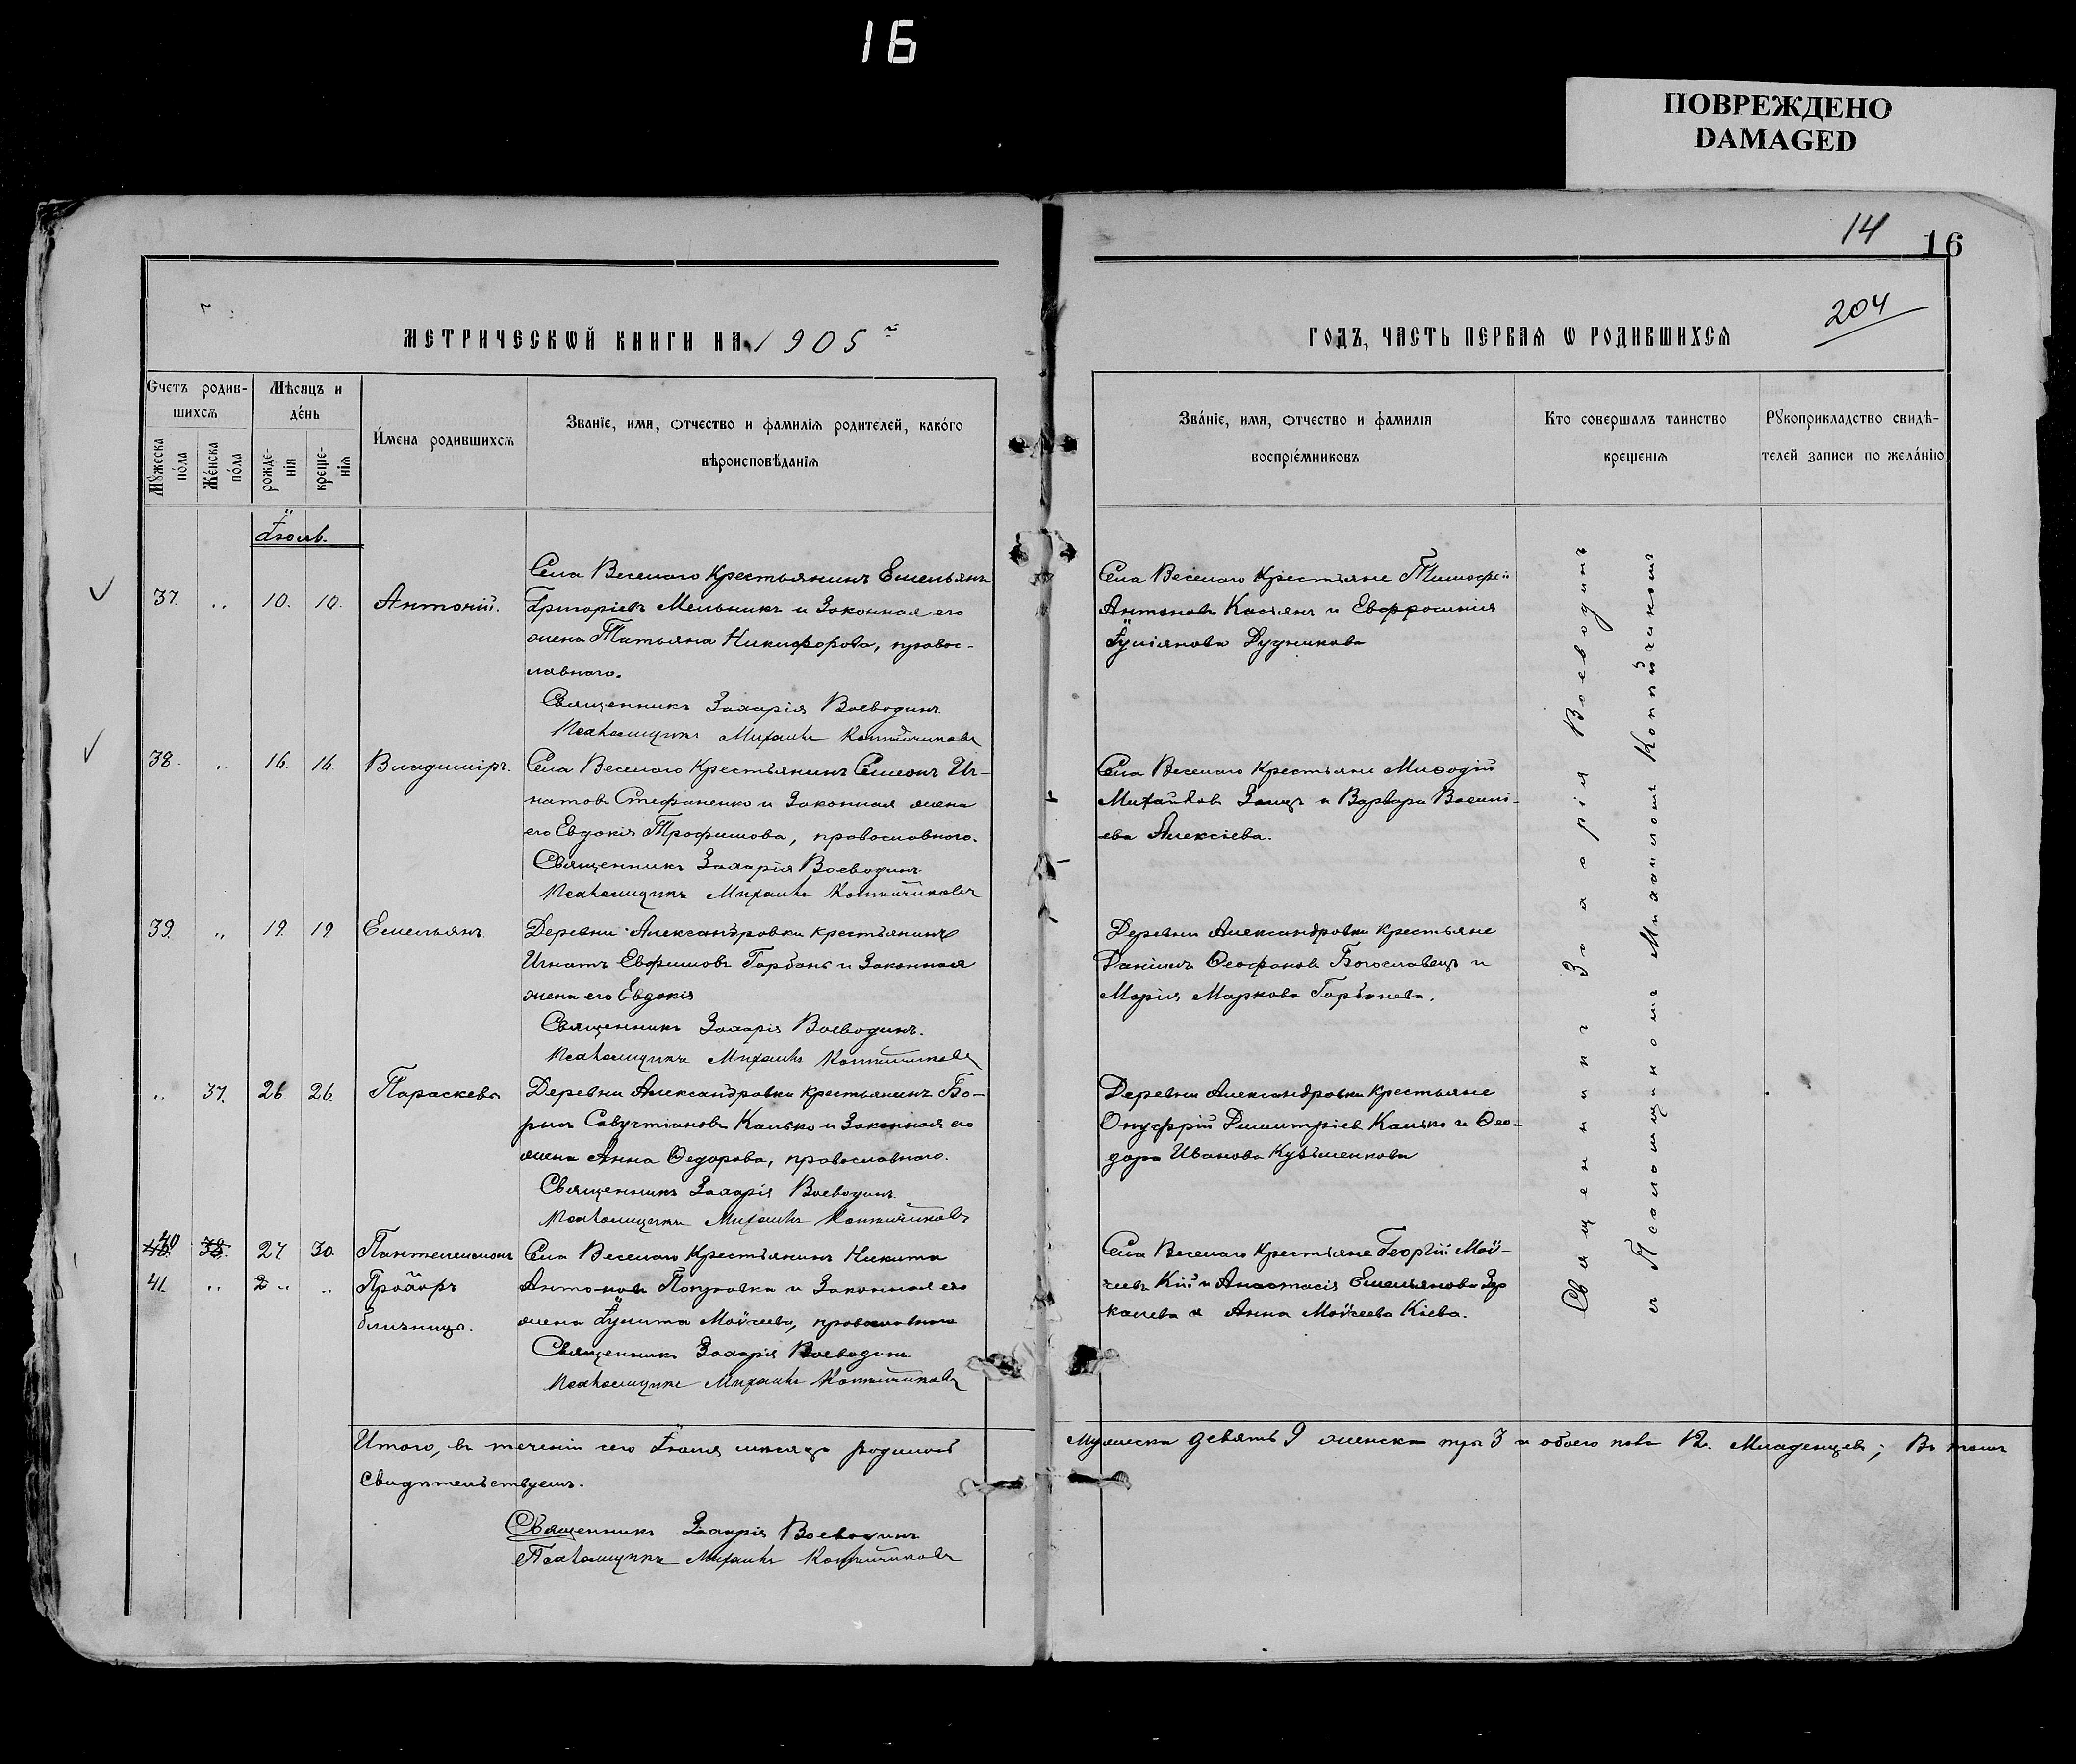 16
ПОВРЕЖДЕНО
DAMAGED
14
16
204
МЕТРИЧЕСКѠЙ КНИГИ НА 1905 й
ГОДЪ, ЧАСТЬ ПЕРВАЯ Ѡ РОДИВШИХСЯ
Счетъ родив-
шихсѧ
Мѣсяцъ и
де́нь
Мꙋжеска
по́ла
Же́нска
по́ла
рожде-
нїѧ
креще-
нїѧ
И́мена родившихсѧ
Званїе, имя, отчество и фамилїѧ родителей, како́го
вѣроисповѣданїѧ
Зва́нїе, имя, отчество и фамилїѧ
воспрїе́мниковъ
Кто совершалъ таинство
крещенїѧ
Рꙋкоприкладство свидѣ-
телей записи по жела́нїю
Іюль.
37. „ 10. 10. Антоній.
Села Веселаго крестьянинъ Емельянъ
Григоріевъ Мельникъ и законная его
жена Татьяна Никифорова, правос-
лавнаго.
Священникъ Захарія Воеводинъ
Псаломщикъ Михаилъ
Села Веселаго крестьяне Тимофей
Антоновъ Касіянъ и Евфросинія
Дудникова
38. „ 16. 16. Владиміръ.
Села Веселаго крестьянинъ Симеонъ Иг-
натовъ Стефаненко и законная жена
его Евдокія Трофимова, православнаго.
Священникъ Захарія Воеводинъ
Псаломщикъ Михаилъ
Села Веселаго крестьяне Миѳодій
Михайловъ Заецъ и Варвара Василі-
ева Алексіева.
39. „ 19. 19 Емельянъ.
Деревни Александровки крестьянинъ
Игнатъ Евфимовъ Горбань и законная
жена его Евдокія
Священникъ Захарія Воеводинъ.
Псаломщикъ Михаилъ
Деревни Александровки крестьяне
Даніилъ Ѳеофановъ Богославецъ и
Марія Маркова Горбанева.
„ 37. 26. 26. Параскева
Деревни Александровки крестьянинъ Бо-
рисъ Савустіановъ Калько и законная его
жена Анна Ѳедорова, православнаго.
Священникъ Захарія Воеводинъ.
Псаломщикъ Михаилъ
Деревни Александровки крестьяне
Онуфрій Димитріевъ Калько и Ѳео-
дора Иванова Кузьменкова
40 38. 27 30. Пантелеимонъ
41. „ 2 „ „ Прохоръ
близнецы.
Села Веселаго крестьянинъ Никита
Антоновъ Поправка и законная его
жена Іулита Моѵсеева, православнаго
Священникъ Захарія Воеводинъ
Псаломщикъ Михаилъ
Села Веселаго крестьяне Георгій Моѵ-
сеевъ Кій и Анастасія Емельянова
и Анна Моѵсеева Кіева.
Священникъ Захарія Воеводинъ
съ Псаломщикомъ Михаиломъ
Итого, въ теченіи сего Іюля мѣсяца родилось
мужеска девять 9 женска три 3 и обоего пола 12. младенцевъ; въ томъ
свидѣтельствуемъ.
Священникъ Захарія Воеводинъ
Псаломщикъ Михаилъ